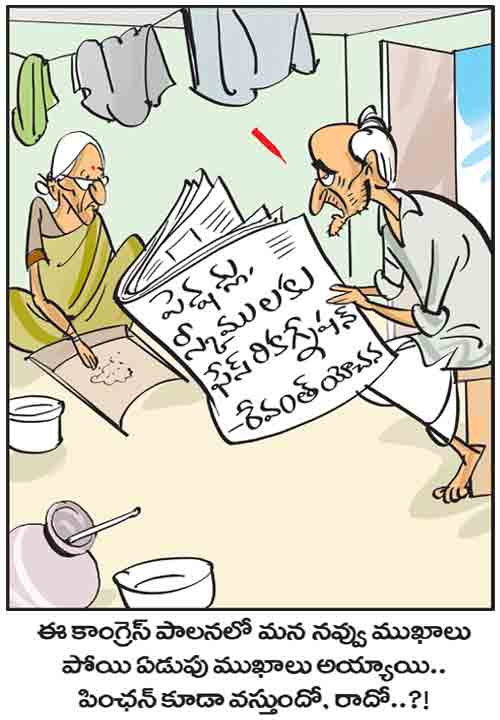 పెన్షన్లు,
స్కీములకు
ఫేస్ రికగ్నేషన్
-రేవంత్ యోచన
ఈ కాంగ్రెస్ పాలనలో మన నవ్వు ముఖాలు
పోయి ఏడుపు ముఖాలు అయ్యాయి..
పింఛన్ కూడా వస్తుందో, రాదో..?!